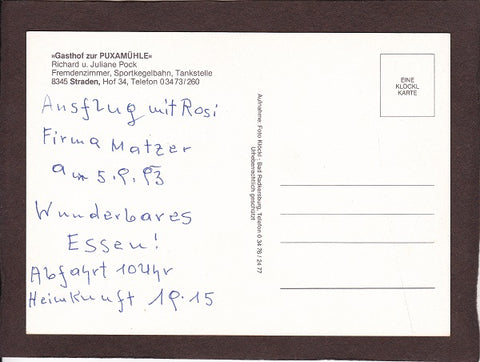 »Gasthof zur PUXAMÜHLE«
Richard u. Juliane Pock
Fremdenzimmer, Sportkegelbahn, Tankstelle
8345 Straden, Hof 34, Telefon 0 34 73/260
Ausflug mit Rosi
Firma Matzer
am 5.9.93
Wunderbares
Essen!
Abfahrt 10 Uhr
Heimkunft 19.15
Aufnahme: Foto Klöckl - Bad Radkersburg, Telefon 0 34 76 / 24 77
Urheberrechtlich geschützt!
EINE
KLÖCKL
KARTE